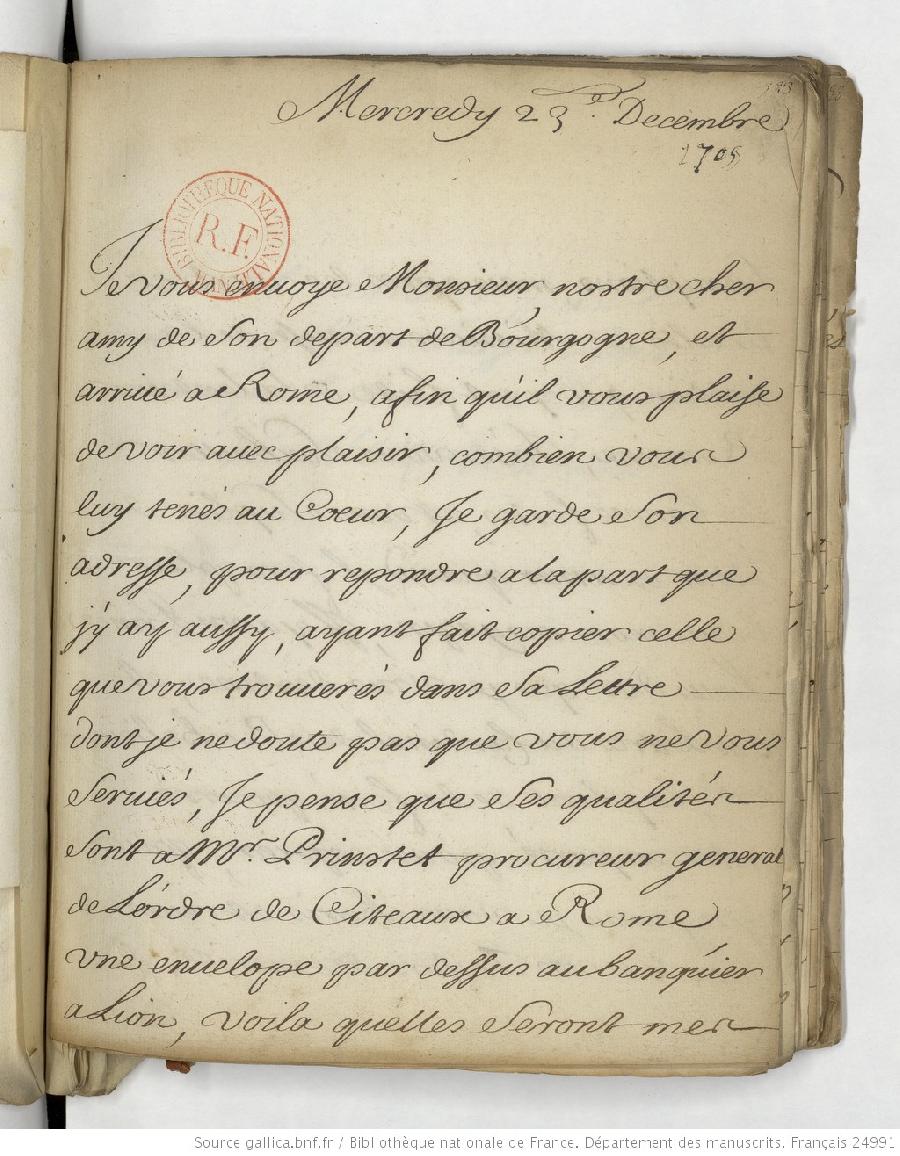 Mercredy 23e. Decembre
1705
BIBLIOTHEQUE NATIONALE
R.F.
Je vous enuoye Monsieur nostre cher
amy de son depart de Bourgogne, et
arriué a Rome, afin qu'il vous plaise
de voir auec plaisir, combien vous
luy tenés au Coeur, Je garde son
adresse, pour repondre a la part que
j'y ay aussy, ayant fait copier celle
que vous trouuerés dans sa Lettre
dont je ne doute pas que vous ne vous
seruiés, Je pense que ses qualités
sont a Mr. Prinstet procureur general
de L'ordre de Citeaux a Rome
vne enuelope par dessus au banquier
a Lion, voila quelles seront mes
Source gallica.bnf.fr / Bibliothèque nationale de France. Département des manuscrits. Français 24991